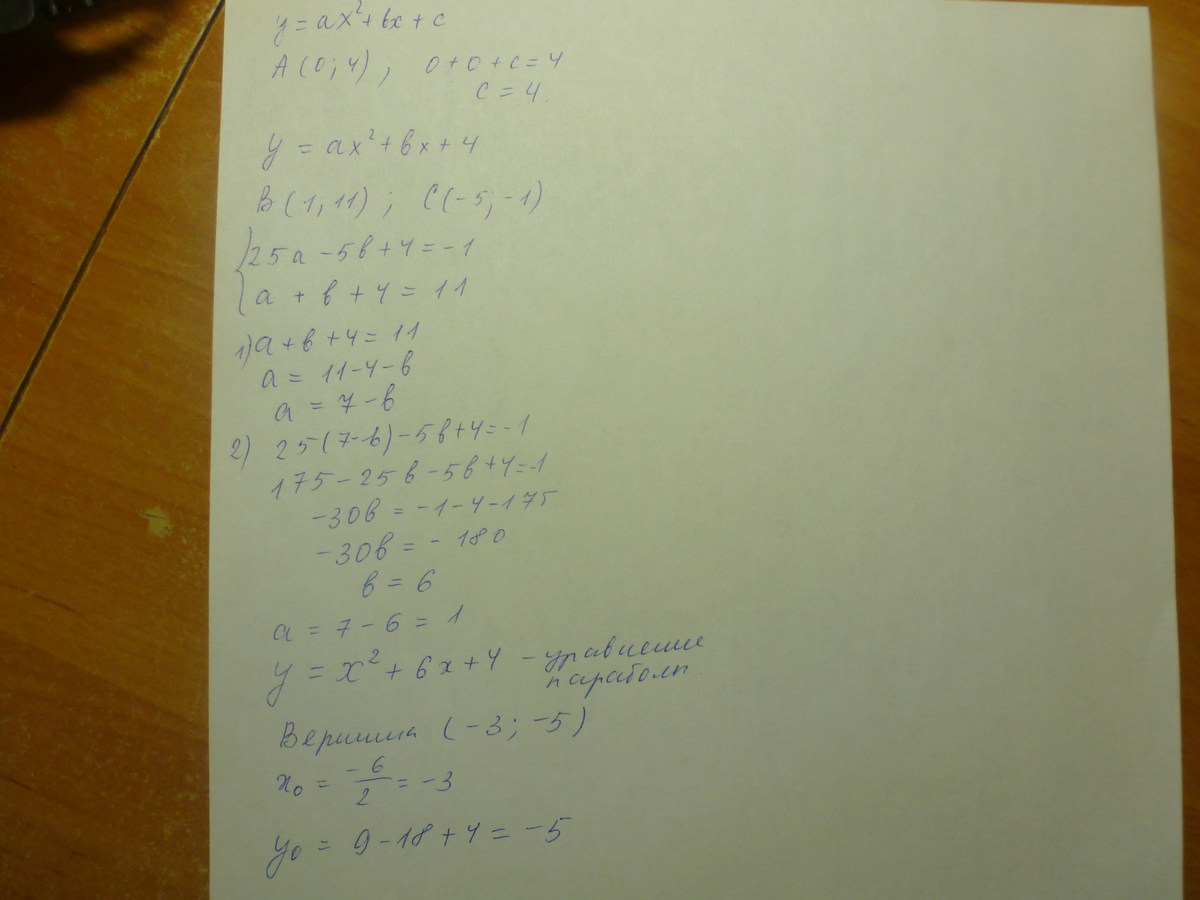 y = ax² + bx + c
A(0; 4), 0 + 0 + c = 4
c = 4.
y = ax² + bx + 4
B(1; 11); C(-5; -1)
25a - 5b + 4 = -1
a + b + 4 = 11
1) a + b + 4 = 11
a = 11 - 4 - b
a = 7 - b
2) 25(7-b) - 5b + 4 = -1
175 - 25b - 5b + 4 = -1
-30b = -1 - 4 - 175
-30b = -180
b = 6
a = 7 - 6 = 1
y = x² + 6x + 4 - уравнение
параболы.
Вершина (-3; -5)
x₀ = -6/2 = -3
y₀ = 9 - 18 + 4 = -5